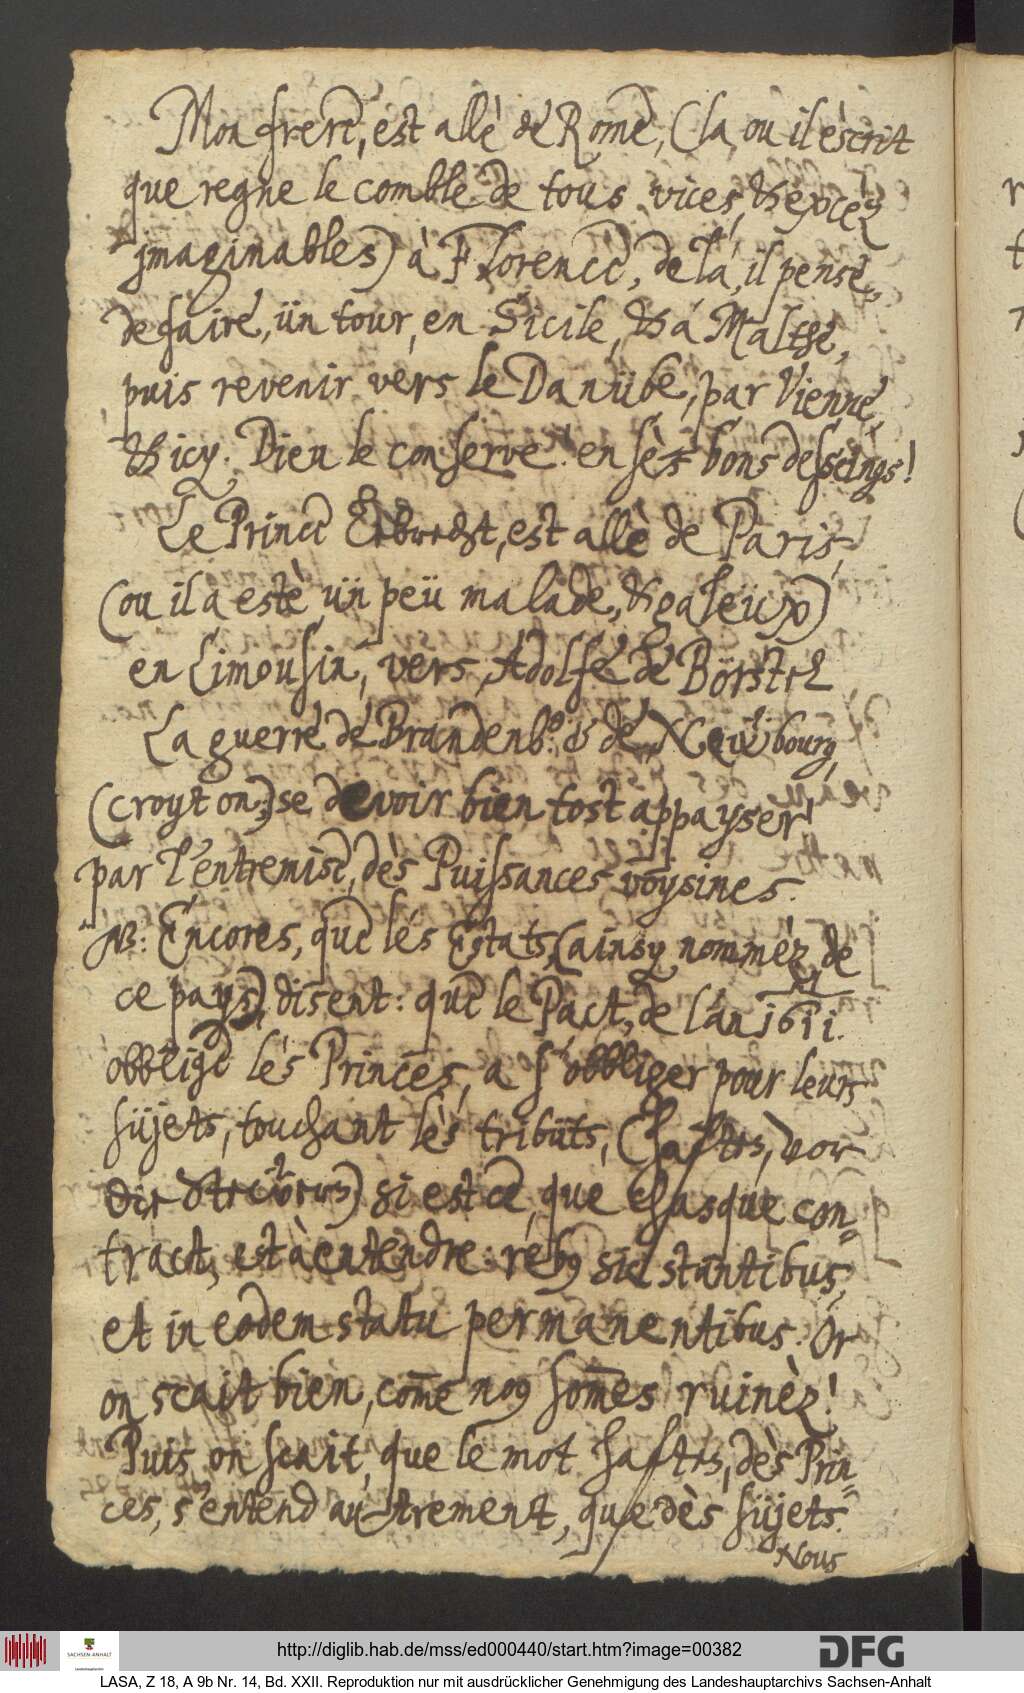 Mon frere, est allè de Rome, (la, ou il escrit
que regne le comble de tous vices, & excéz
jmaginables) à Florence, de là, il pense,
de faire, ün tour, en Sicile, & á Malthe,
puis revenir vers le Danübe, par Vienne,
& icy. Dieu le conserve! en sèz bons desseings!
Le Prince est allè de Paris,
(ou il a estè ün peü malade, & galeüx)
en Limousin, vers Adolfe de Börstel
La guerre de Brandenb.º & de Neübourg,
(croyt on) se devoir bien tost appayser!
par l'entremise, dès Puissances voysines.
NB: Encores, que lés Estats, (ainsy nommèz de
ce pays), disent: que le Pact, de l'an 1611.
obblige lés Princes, a s'obbliger pour leurs
süjets, touchant lès tribüts, (haften, vor
die) si est ce, que chasque con¬
tract, est à entendre: rebq sic stantibus,
et in eodem statu permanentibus. Or
on scait bien, come noq somes ruinèz!
Puis on scait, que le mot haften, dès Prin¬
ces, s'entend autrement, que dès süjets.
Nous
http://diglib.hab.de/mss/ed000440/start.htm?image=00382
SACHSEN-ANHALT
Landeshauptarchiv
DFG
LASA, Z 18, A 9b Nr. 14, Bd. XXII. Reproduktion nur mit ausdrücklicher Genehmigung des Landeshauptarchivs Sachsen-Anhalt